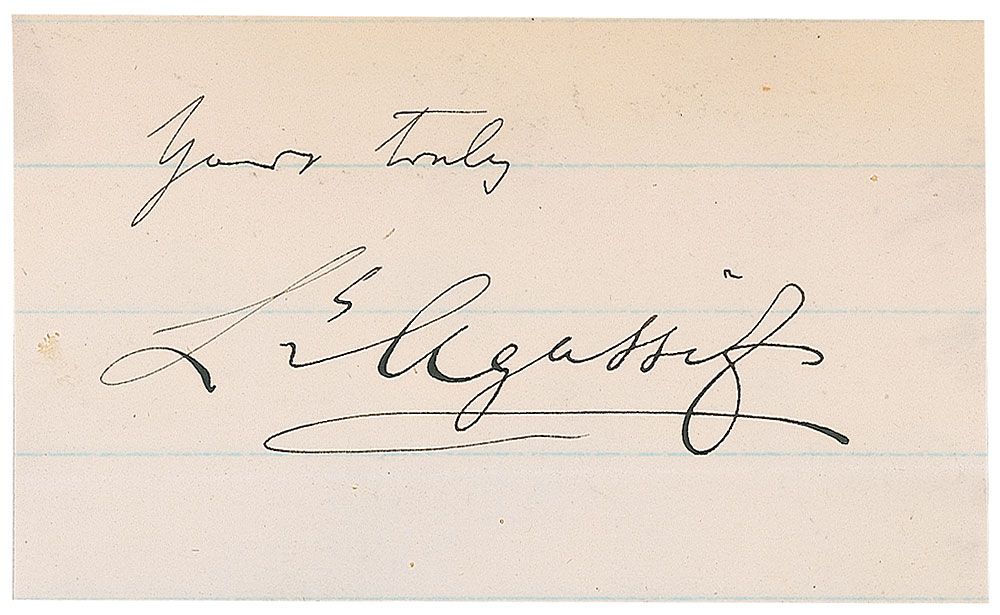 Yours truly
Ls Agassiz